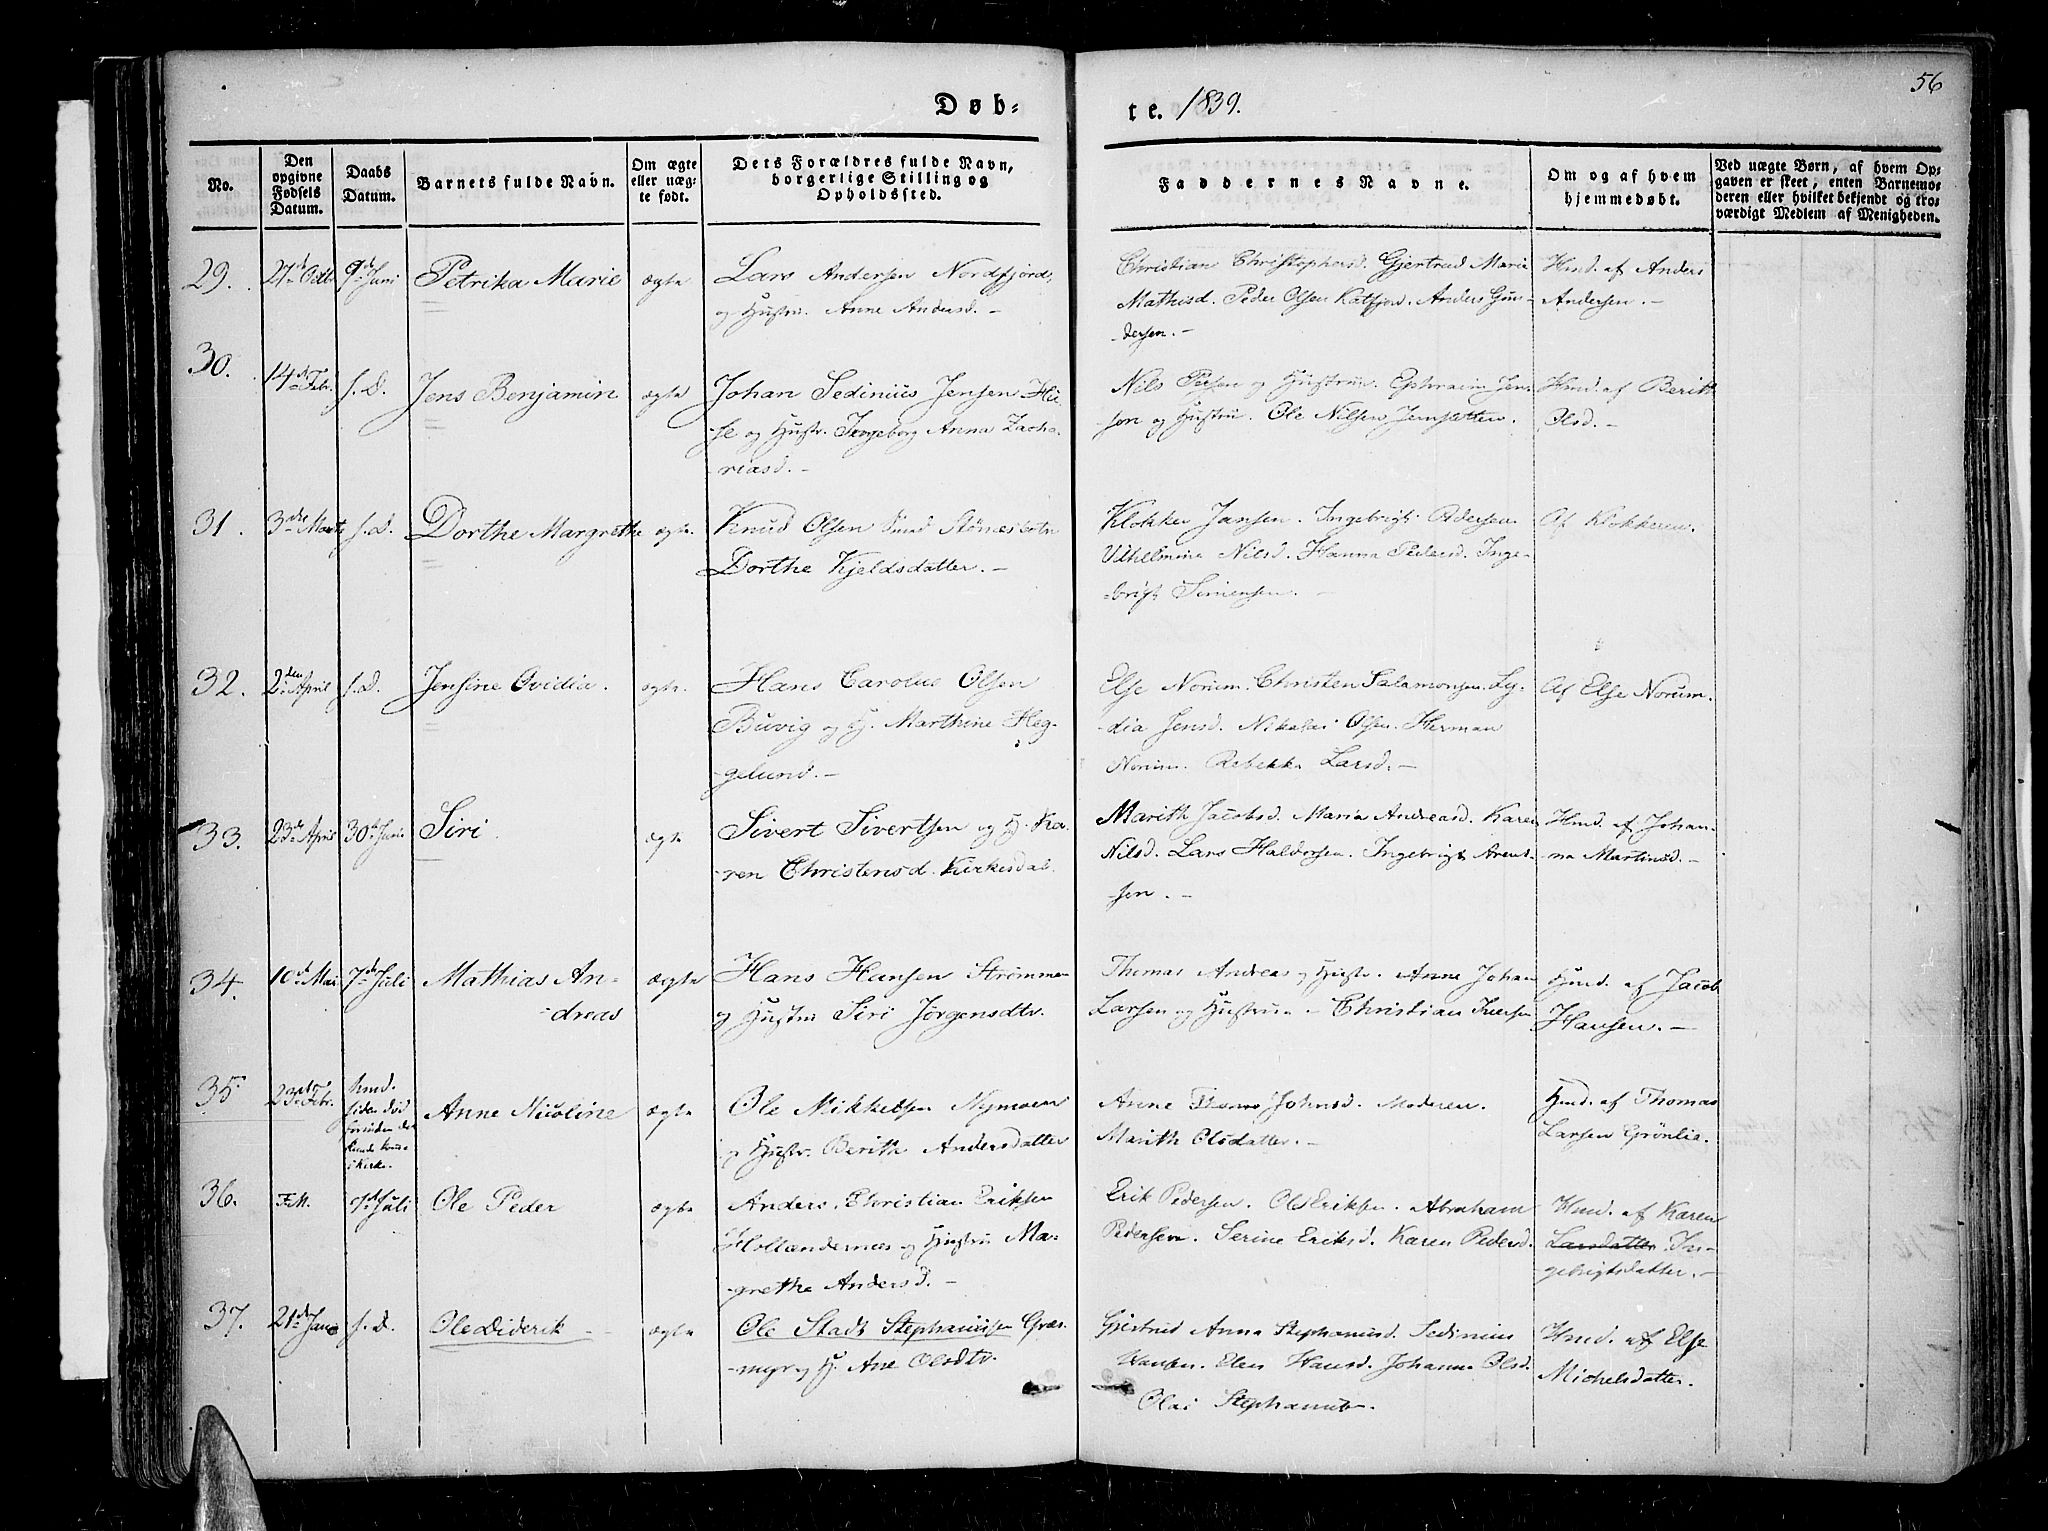 56
Døb-
te. 1839.
No.
Den opgivne Fødsels Datum.
Daabs Datum.
Barnets fulde Navn.
Om ægte eller uægte født.
Dets Forældres fulde Navn, borgerlige Stilling og Opholdssted.
Faddernes Navne.
Om og af hvem hjemmedøbt.
Ved uægte Børn, af hvem Opgaven er skeet, enten Barnemoderen eller hvilket bekjendt og troværdigt Medlem af Menigheden.
29. 27d Octbr 9d Juni Petrika Marie ægte Lars Andersen Nordfjord,
og Hustru Anne Andersd. -
Christian Christophersd. Gjertrud Maria
Mathisd. Peder Olsen Katfjord. Anders Gun-
dersen. -
Hmd. af Anders
Andersen. -
30. 14d Febr. s. D. Jens Benjamin ægte Johan Sedinius Jensen Hu-
se og Hustr. Ingeborg Anna Zacha-
riasd. -
Nils Persen og Hustru. Ephraim Jen-
sen og Hustru. Ole Nilsen
Hmd. af Berith
Olsd. -
31. 3die Marts s. D. Dorthe Margrethe ægte. Knud Olsen
Dorthe Kjeldsdatter. -
Klokker Jansen. Ingebrigt Pedersen.
Vilhelmine Nilsd. Hanna Pedersd. Inge-
brigt Simensen. -
Af Klokkeren.
32. 2den April s. D. Jensine Ovidia. ægte. Hans Carolus Olsen
Buvig og H. Marthine Heg-
gelund. -
Else Norum. Christen Salamonsen. Ly-
dia Jensd. Nikolai Olsen. Herman
Norum. Rebekka Larsd. -
Af Else Norum.
33. 23d April 30d Juni Siri ægte Sivert Sivertsen og H. Ka-
ren Christensd. Kirkesdal.
Marith Jacobsd. Maria Andreasd. Karen
Nilsd. Lars Haldorsen. Ingebrigt Arent-
sen. -
Hmd. af Johan-
na Martinsd. -
34. 10d Mai 7d Juli Mathias An-
dreas
ægte Hans Hansen Strømmen
og Hustru Siri Jørgensdtr.
Thomas Andreas og Hustr. Anne Johan
Larsen og Hustrue - Christian Iversen
Hmd. af Jacob
Hansen. -
35 23d Febr. hmd.
siden død
forinden det
kunde komme
i Kirke.
Anne Nicoline ægte Ole Mikkelsen Nymoen
og Hustr. Berith Andersdatter
Anne Johnsd. Moderen.
Marith Olsdatter. -
Hmd. af Thomas
Larsen Grønlie.
36. 7d Juli Ole Peder ægte Anders Christian Eriksen
Hollendernæs og Hustru Ma-
grethe Andersd. -
Erik Pedersen. Ole Eriksen. Abraham
Pedersen. Serine Eriksd. Karen Pedersd.
Hmd. af Karen
Larsdatter In-
gebrigtsdatter. -
37. 21d s. D. Ole Diderik - ægte Ole Stads Stephanusen Græs-
myr og H. Ane Olsdtr.
Gjertrud Anna Stephanusd. Sedinius
Hansen. Elen Hansd. Johanna Olsd.
Olai
Hmd. af Else
Michelsdatter.